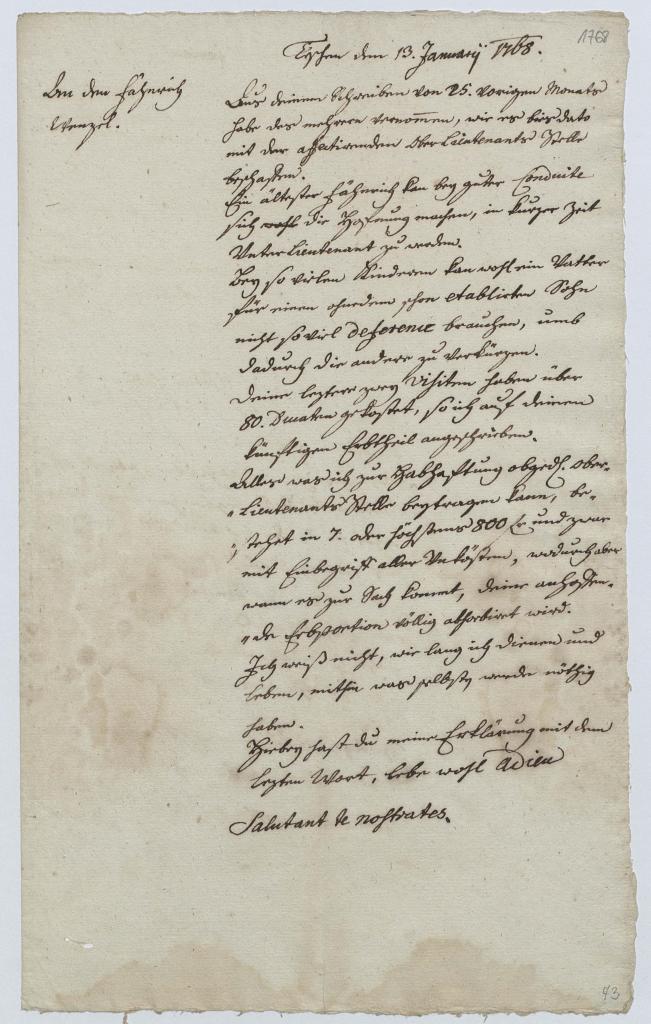 1768
Teschen dem 13. Januarij 1768.
An den Fähnrich
Wenzel.
Aus deinem Schreiben von 25. vorigen Monats
habe des mehrern vernommen, wie es bis dato
mit der affectirenden Ober Lieutenants Stelle
beschaffen.
Ein ältester Fähnrich kan bey guter Conduite
sich die Hofnung machen, in kurzer Zeit
Unter Lieutenant zu werden.
Bey so vielen Kinderen kan wohl ein Vatter
für einen ohnedem schon etablirten Sohn
nicht so viel deference brauchen, umb
dadurch die andere zu verkürzen.
Deine leztere zwey Visiten haben über
80. Ducaten gekostet, so ich auf deinen
künftigen Erbtheil angeschrieben.
Alles was ich zur Habhafftung obged. Ober-
"Lieutenants Stelle beytragen kann, be-
"stehet in 7. oder höchstens 800 fr und zwar
mit Einbegriff aller Unkösten, wodurch aber
wann es zur Sach kommt, deine anhoffen-
"de Erbportion völlig absorbiret wird.
Ich weiß nicht, wie lang ich dienen und
leben, mithin was selbst werde nöthig
haben.
Hiebey hast du meine Erklärung mit dem
lezten Wort, lebe wohl Adieu
Salutant te nostrates.
43